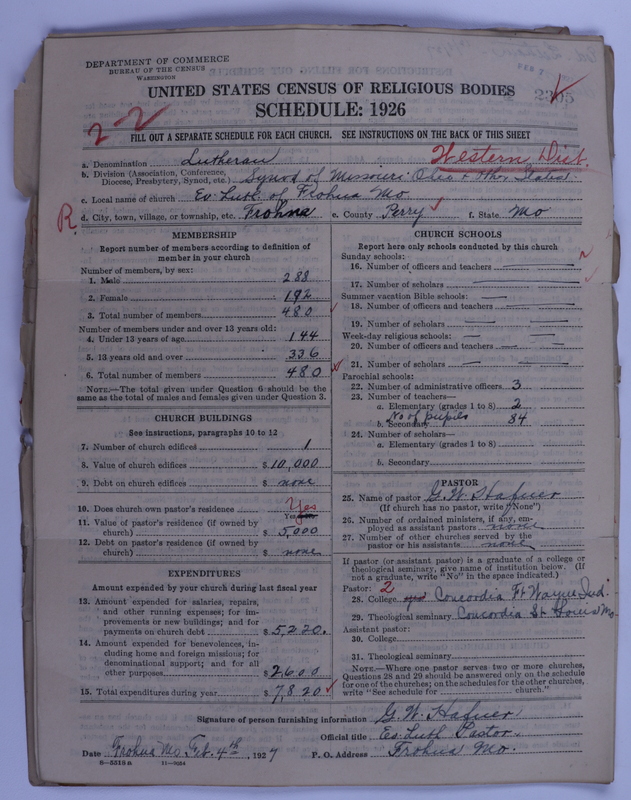 DEPARTMENT OF COMMERCE
BUREAU OF THE CENSUS
WASHINGTON
UNITED STATES CENSUS OF RELIGIOUS BODIES
SCHEDULE: 1926
2-2
FILL OUT A SEPARATE SCHEDULE FOR EACH CHURCH. SEE INSTRUCTIONS ON THE BACK OF THIS SHEET
Western Dist.
a. Denomination Lutheran
b. Division (Association, Conference, Diocese, Presbytery, Synod, etc.) Synod of Missouri Ohio + Other States.
c. Local name of church Ev. Luth. of Frohna Mo
R
d. City, town, village, or township, etc. Frohna e. County Perry f. State Mo
MEMBERSHIP
Report number of members according to definition of
member in your church
Number of members, by sex:
1. Male 288
2. Female 192
3. Total number of members 480
Number of members under and over 13 years old:
4. Under 13 years of age 144
5. 13 years old and over 336
6. Total number of members 480
NOTE.—The total given under Question 6 should be the
same as the total of males and females given under Question 3.
CHURCH BUILDINGS
See instructions, paragraphs 10 to 12
7. Number of church edifices 1
8. Value of church edifices $10,000
9. Debt on church edifices $ none
10. Does church own pastor's residence Yes
11. Value of pastor's residence (if owned by
church) $ 5,000
12. Debt on pastor's residence (if owned by
church) $ none
EXPENDITURES
Amount expended by your church during last fiscal year
13. Amount expended for salaries, repairs,
and other running expenses; for im-
provements or new buildings; and for
payments on church debt $5,220.
14. Amount expended for benevolences, in-
cluding home and foreign missions; for
denominational support; and for all
other purposes $2600
15. Total expenditures during year $7,820
CHURCH SCHOOLS
Report here only schools conducted by this church
Sunday schools:
16. Number of officers and teachers
17. Number of scholars
Summer vacation Bible schools:
18. Number of officers and teachers
19. Number of scholars
Week-day religious schools:
20. Number of officers and teachers
21. Number of scholars
Parochial schools:
22. Number of administrative officers 3
23. Number of teachers—
a. Elementary (grades 1 to 8) 2
No of pupils 84
b. Secondary
24. Number of scholars—
a. Elementary (grades 1 to 8)
b. Secondary
PASTOR
25. Name of pastor G. W. Hafner
(If church has no pastor, write "None")
26. Number of ordained ministers, if any, em-
ployed as assistant pastors none
27. Number of other churches served by the
pastor or his assistants none
If pastor (or assistant pastor) is a graduate of a college or
theological seminary, give name of institution below. (If
not a graduate, write "No" in the space indicated.)
Pastor: 2
28. College Concordia Ft Wayne Ind.
29. Theological seminary Concordia St Louis Mo
Assistant pastor:
30. College
31. Theological seminary
NOTE.—Where one pastor serves two or more churches,
Questions 28 and 29 should be answered only on the schedule
for one of the churches; on the schedules for the other churches,
write "See schedule for church."
Signature of person furnishing information G. W. Hafner
Official title Ev. Luth Pastor
Date Frohna Mo. Feb. 4th 1927 P. O. Address Frohna Mo.
8-5518a 11-9054